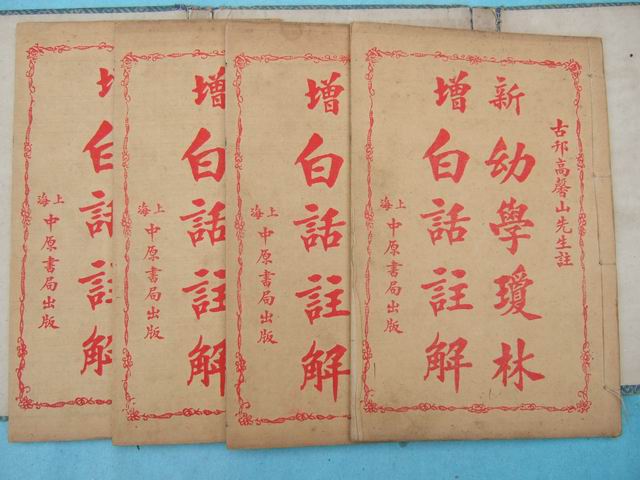 古邗高馨山先生註
新幼學瓊林
增白話註解
上海中原書局出版
增白話註解
上海中原書局出版
增白話註解
上海中原書局出版
增白話註解
上海中原書局出版